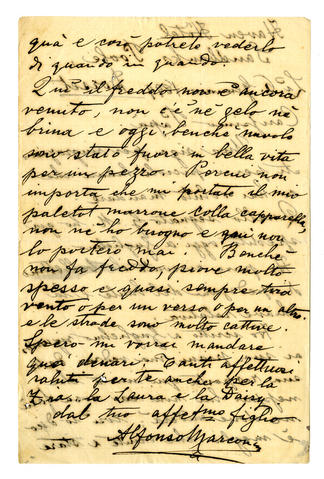 quà e così potrete vederlo
di quando in quando.
Qui il freddo non è ancora
venuto, non c'è nè gelo nè
brina e oggi, benchè nuvolo
sono stato fuori in bella vita
per un pezzo. Percui non
importa che mi portate il mio
paletot marrone colla capparella,
non ne ho bisogno e qui non
lo porterò mai. Benche
non fa freddo, piove molto
spesso e quasi sempre tira
vento o per un verso o per un altro
e le strade sono molto cattive.
Spero mi vorrai mandare
quà denari. Tanti affettuosi
saluti per te anche per la
Zia, la Laura e la Daisy
dal tuo affetmo figlio
Alfonso Marconi
Haven Hotel